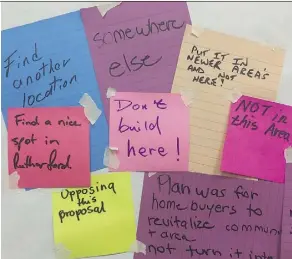 Find
another
location
somewhere
else
PUT IT IN
NEWER AREA'S
AND NOT
HERE!
Find a nice
spot in
Rutherford
Don't
build
here!
NOT in
this Area
Opposing
this
proposal
Plan was for
home buyers to
revitalize commun
+ area
not turn it int